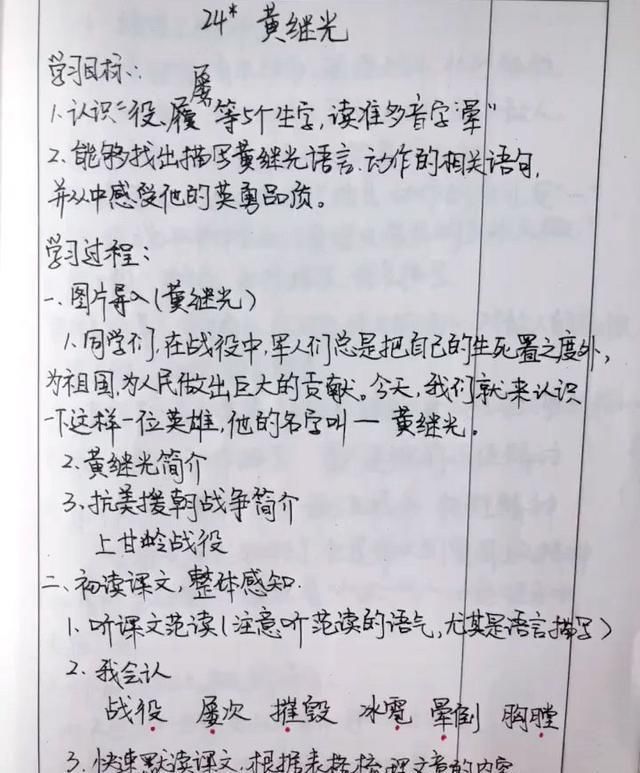 24* 黄继光
学习目标:
屡
1.认识"役、履"等5个生字,读准多音字"晕"
2.能够找出描写黄继光语言、动作的相关语句,
并从中感受他的英勇品质。
学习过程:
一、图片导入(黄继光)
1.同学们,在战役中,军人们总是把自己的生死置之度外,
为祖国,为人民做出巨大的贡献。今天,我们就来认识
一下这样一位英雄,他的名字叫一 黄继光。
2.黄继光简介
3.抗美援朝战争简介
上甘岭战役
二、初读课文,整体感知.
1.听课文范读(注意听范读的语气,尤其是语言描写)
2.我会认
战役 屡次 摧毁 冰雹 晕倒 胸膛
3.快速默读课文,根据表格梳理文章的内容